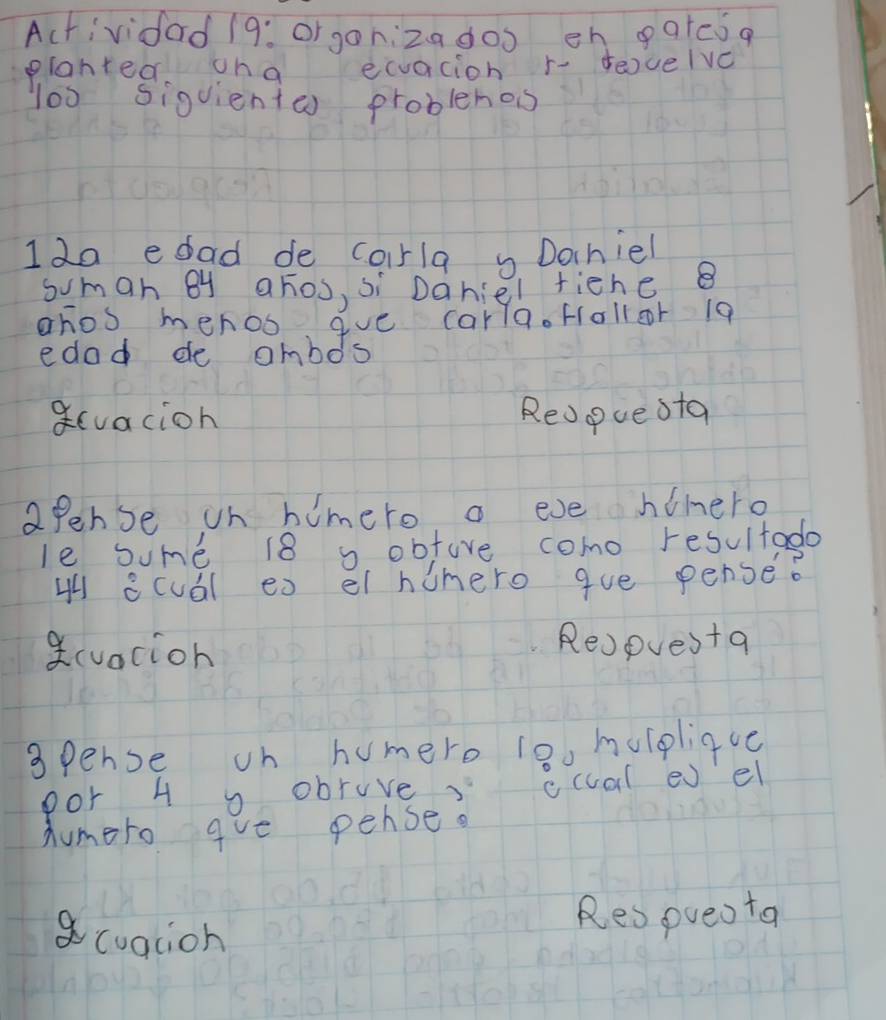 Actividad 19: organizados en pareja
plantea una ecuacion y resuelve
los siguientes problemas
1 La edad de carla y Daniel
suman 84 años, si Daniel tiene 8
años menos que carla. Hallar la
edad de ambos
Ecuacion Respuesta
2 Pense un número a ese número
le sumé 18 y obtuve como resultado
44 ¿cuál es el número que pensé?
Ecuacion Respuesta
3 Pense un numero lo, mulplique
por 4 y obtuve ¿cual es el
numero que pense?
Ecuacion Respuesta